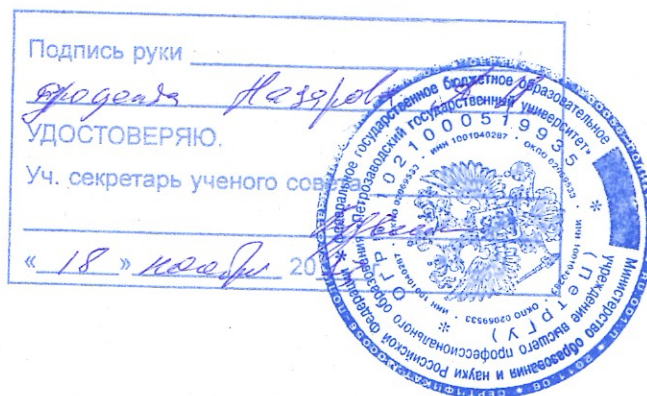 Подпись руки
Назаров
УДОСТОВЕРЯЮ.
Уч. секретарь ученого совета
« 18 » ноября 20
Министерство образования и науки Российской Федерации
Федеральное государственное бюджетное образовательное
учреждение высшего профессионального образования
«Петрозаводский государственный университет»
(ПетрГУ)
ОГРН 1021000519935
ИНН 1001040287 · ОКПО 02069533